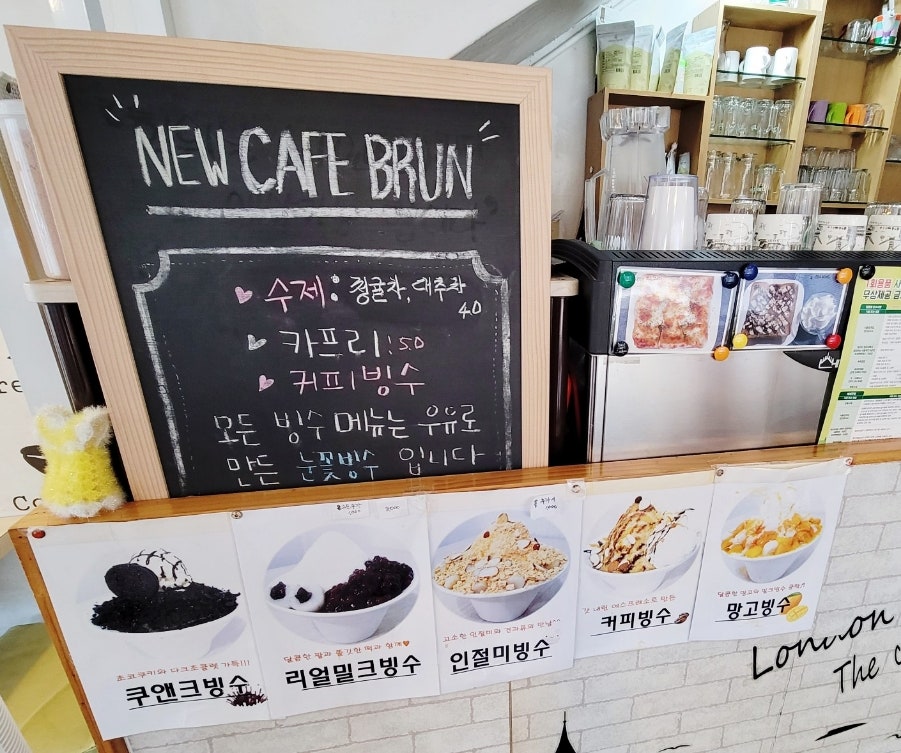 NEW CAFE BRUN
수제: 청귤차, 대추차
4.0
카프리!50
커피빙수
모든 빙수 메뉴는 우유로
만든 눈꽃빙수 입니다
초코쿠키와 다크초콜렛 가득!!!
쿠앤크빙수
달콤한 팥과 쫄깃한 떡과 함께♥
리얼밀크빙수
고소한 인절미와 견과류의 만남
인절미빙수
갓 내린 에스프레소로 만든
커피빙수
달콤한 망고와 밀크빙수
망고빙수
London
The